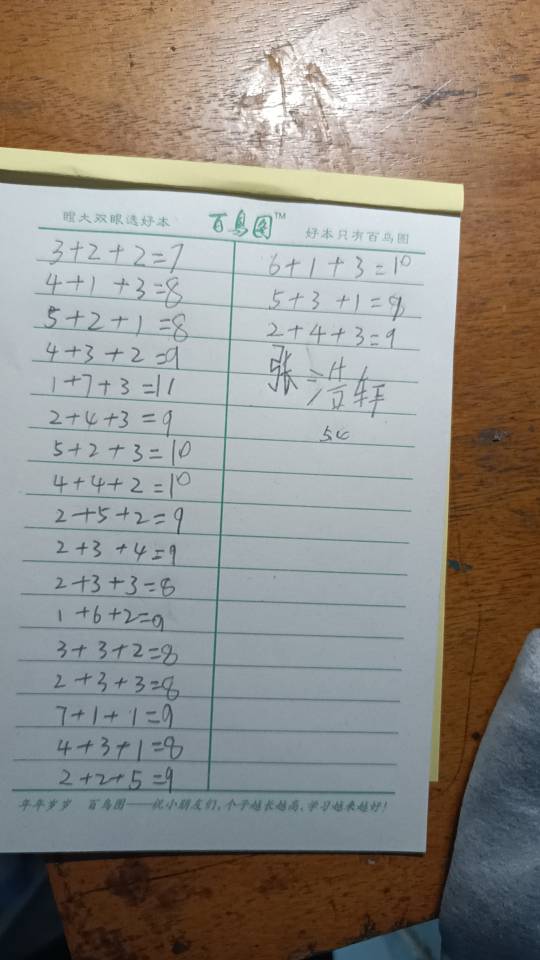 瞪大双眼选好本 百鸟图™ 好本只有百鸟图
3+2+2=7
4+1+3=8
5+2+1=8
4+3+2=9
1+7+3=11
2+4+3=9
5+2+3=10
4+4+2=10
2+5+2=9
2+3+4=9
2+3+3=8
1+6+2=9
3+3+2=8
2+3+3=8
7+1+1=9
4+3+1=8
2+2+5=9
6+1+3=10
5+3+1=9
2+4+3=9
张
年年岁岁 百鸟图——祝小朋友们,个子越长越高,学习越来越好!